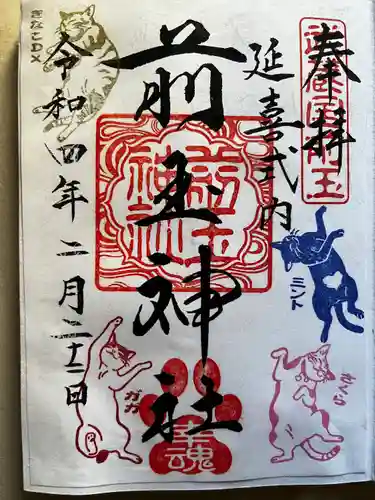 奉拝
武蔵国前玉
延喜式内
前玉神社
前玉
神社
幸魂
令和四年二月二十二日
きなこDX
ミント
ガガ